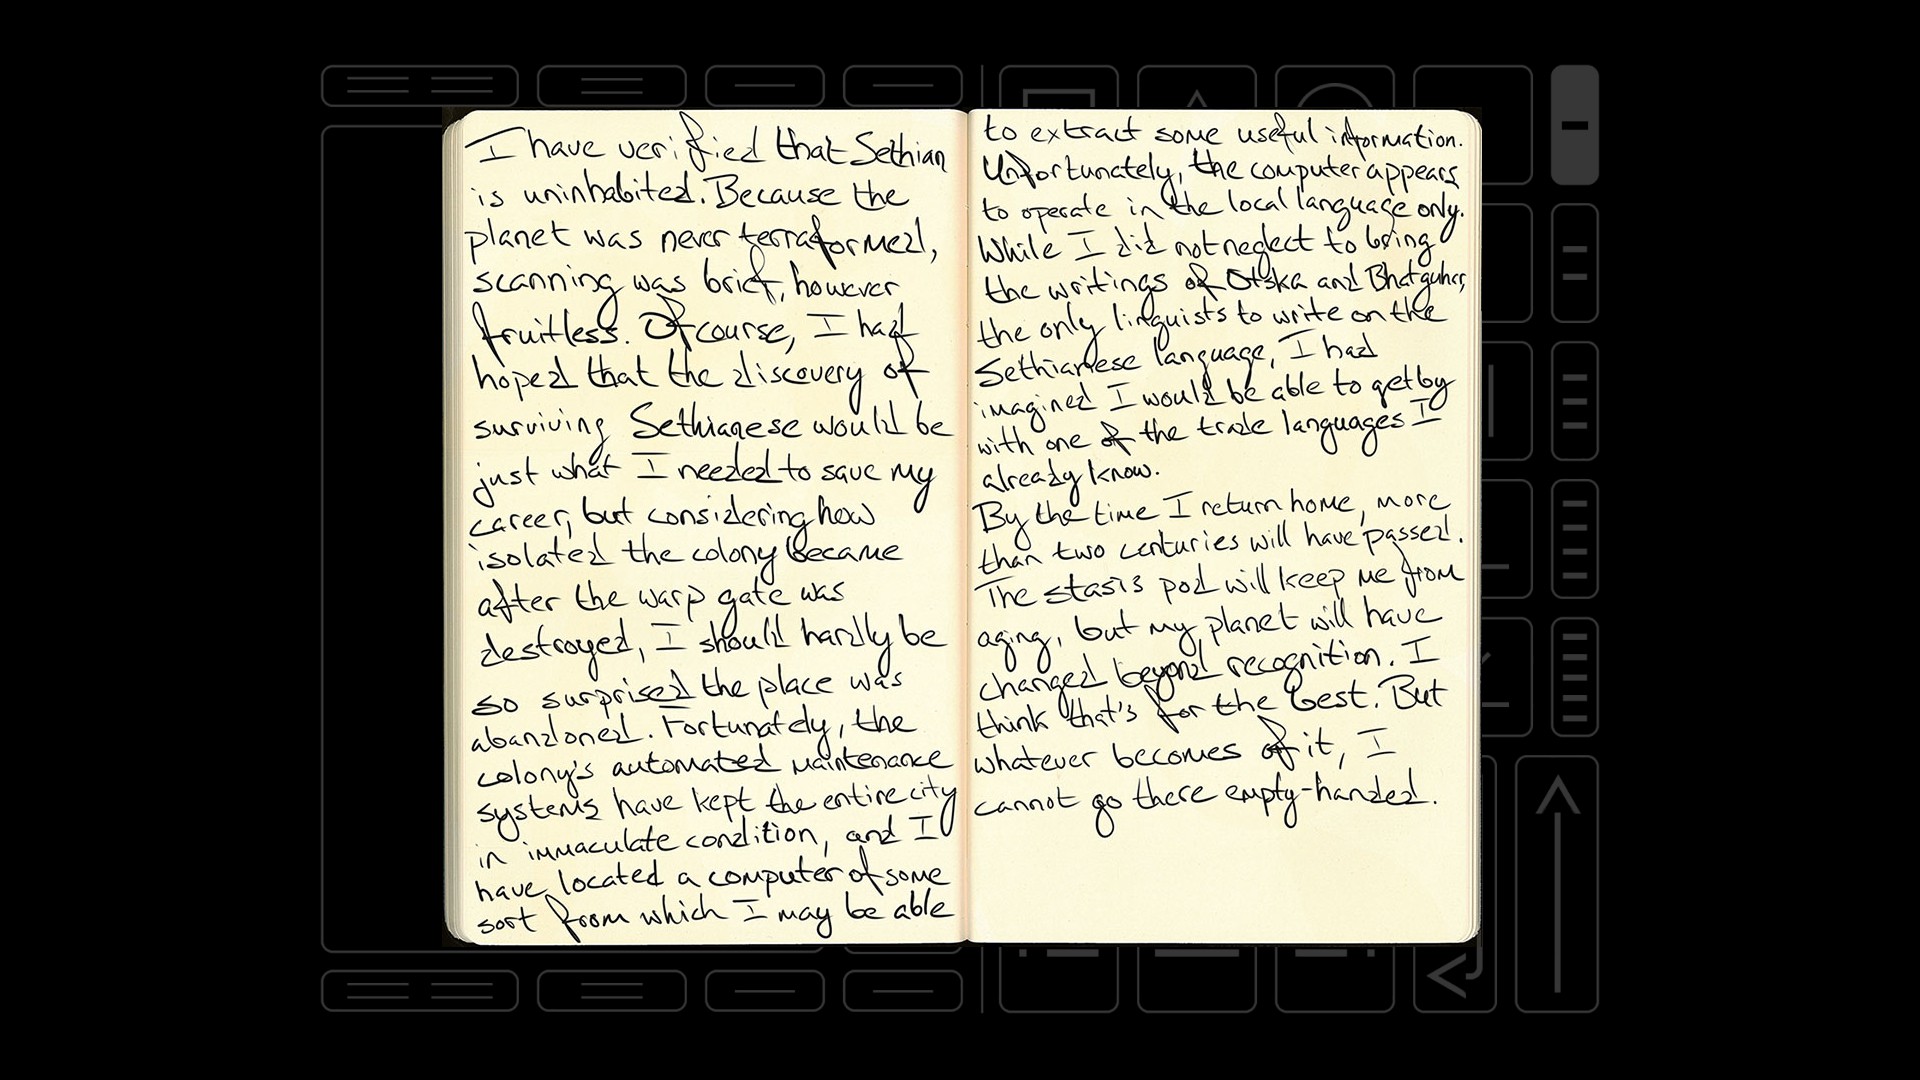 I have verified that Sethian
is uninhabited. Because the
planet was never terraformed,
scanning was brief, however
fruitless. Of course, I had
hoped that the discovery of
surviving Sethianese would be
just what I needed to save my
career, but considering how
isolated the colony became
after the warp gate was
destroyed, I should hardly be
so surprised the place was
abandoned. Fortunately, the
colony's automated maintenance
systems have kept the entire city
in immaculate condition, and I
have located a computer of some
sort from which I may be able
to extract some useful information.
Unfortunately, the computer appears
to operate in the local language only.
While I did not neglect to bring
the writings of Otska and Bhatguhar,
the only linguists to write on the
Sethianese language, I had
imagined I would be able to get by
with one of the trade languages I
already know.
By the time I return home, more
than two centuries will have passed.
The stasis pod will keep me from
aging, but my planet will have
changed beyond recognition. I
think that's for the best. But
whatever becomes of it, I
cannot go there empty-handed.